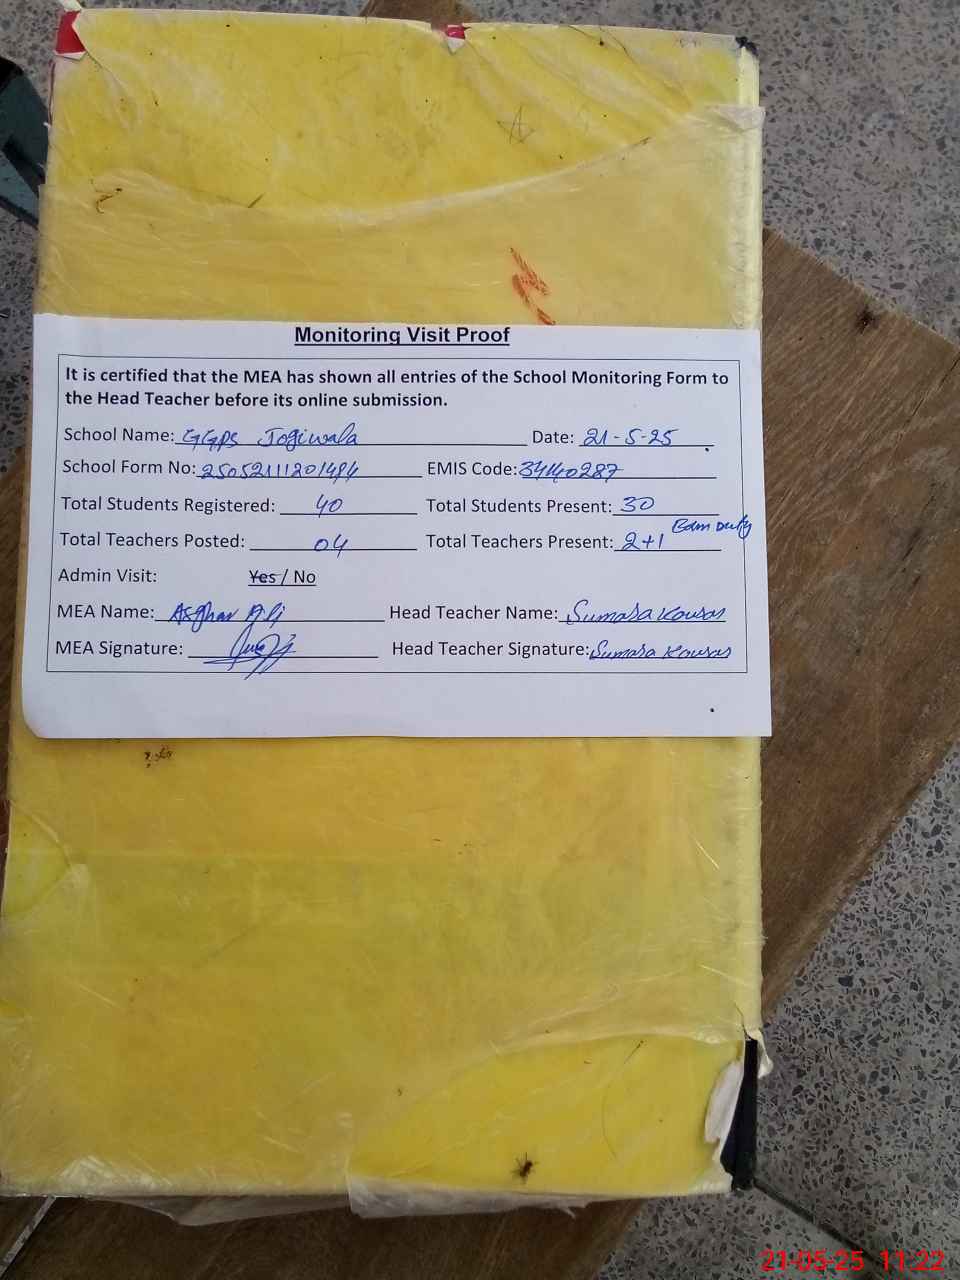 Monitoring Visit Proof
It is certified that the MEA has shown all entries of the School Monitoring Form to
the Head Teacher before its online submission.
School Name: GGPS Jogiwala Date: 21-5-25
School Form No: 25052111201484 EMIS Code: 34140287
Total Students Registered: 40 Total Students Present: 30
Total Teachers Posted: 04 Total Teachers Present: 2+1 Duty
Admin Visit: Yes / No
MEA Name: Asghar Ali Head Teacher Name: Sumara Kousar
MEA Signature: Head Teacher Signature: Sumara Kousar
21-05-25 11:22